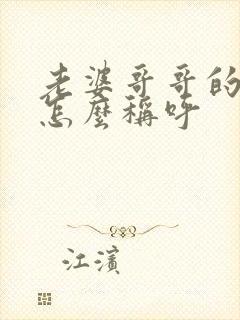 老婆哥哥的
怎麼稱呼
江濱